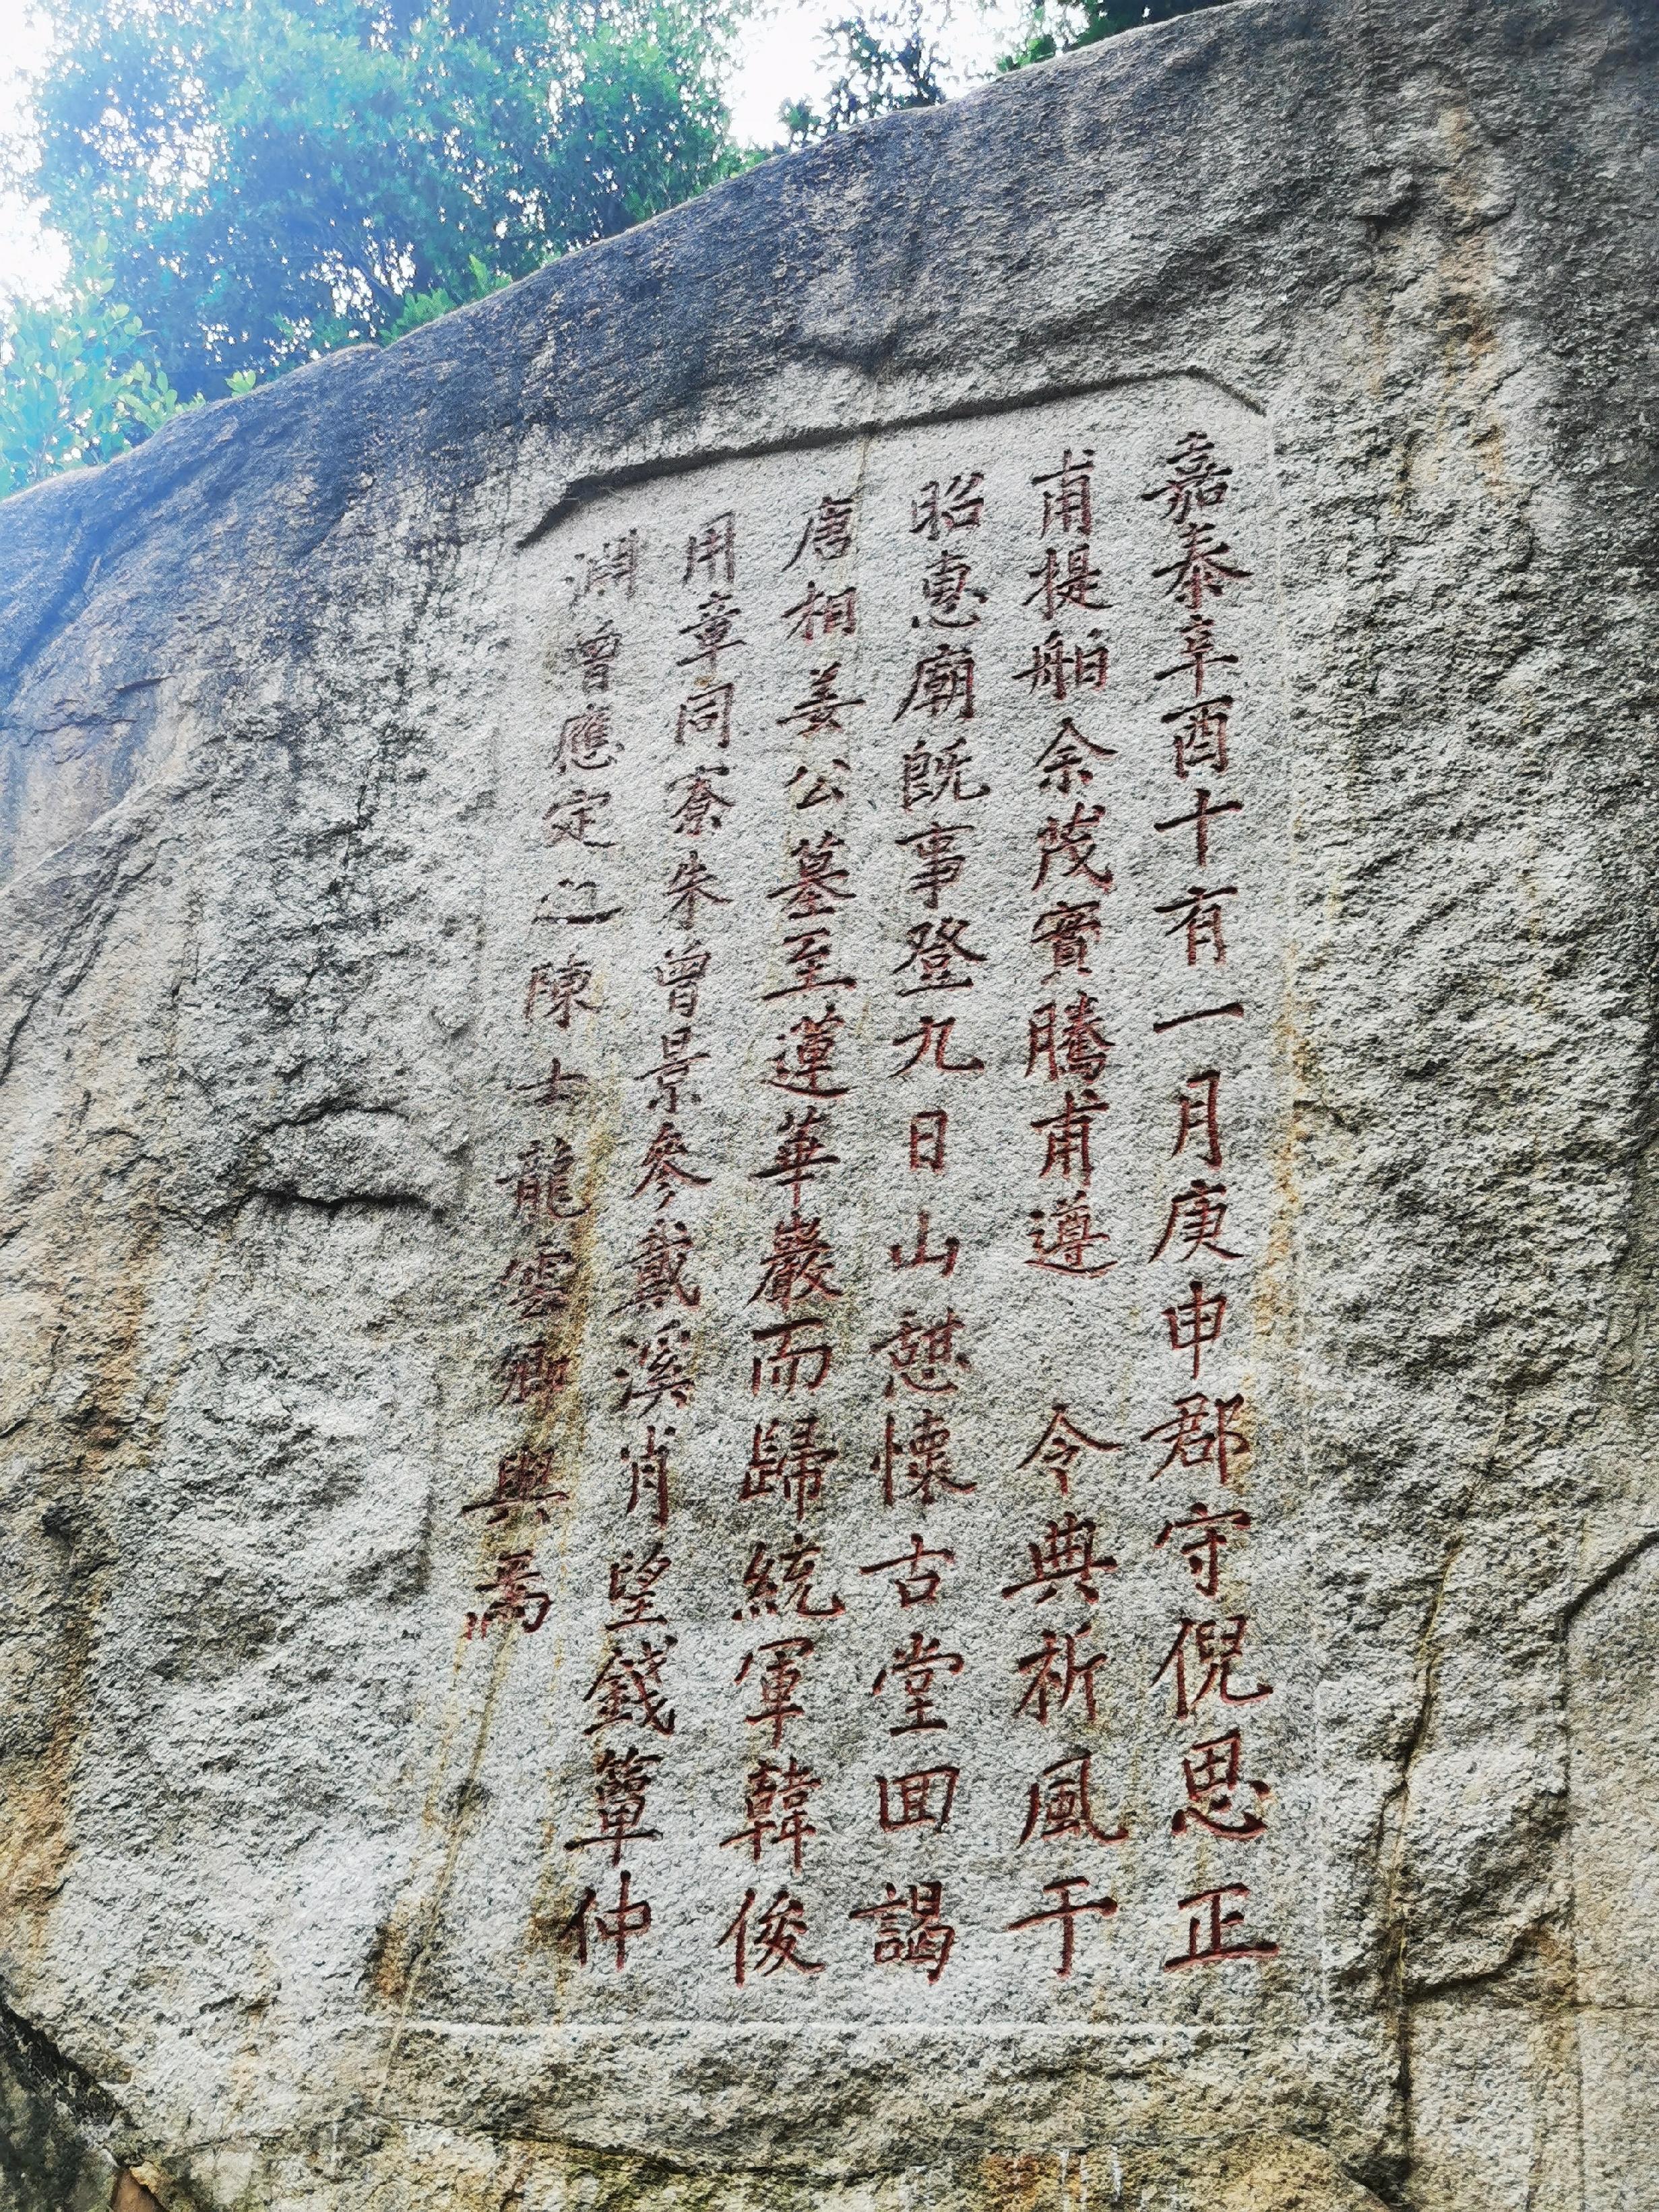 嘉泰辛酉十有一月庚申郡守倪思正
甫提舶余茂實騰甫遵 令典祈風于
昭惠廟既事登九日山憇懷古堂回謁
唐相姜公墓至蓮華巖而歸統軍韓俊
用章同寮朱曾景參戴溪肖望錢簞仲
淵曾應定之陳士龍雲卿與焉